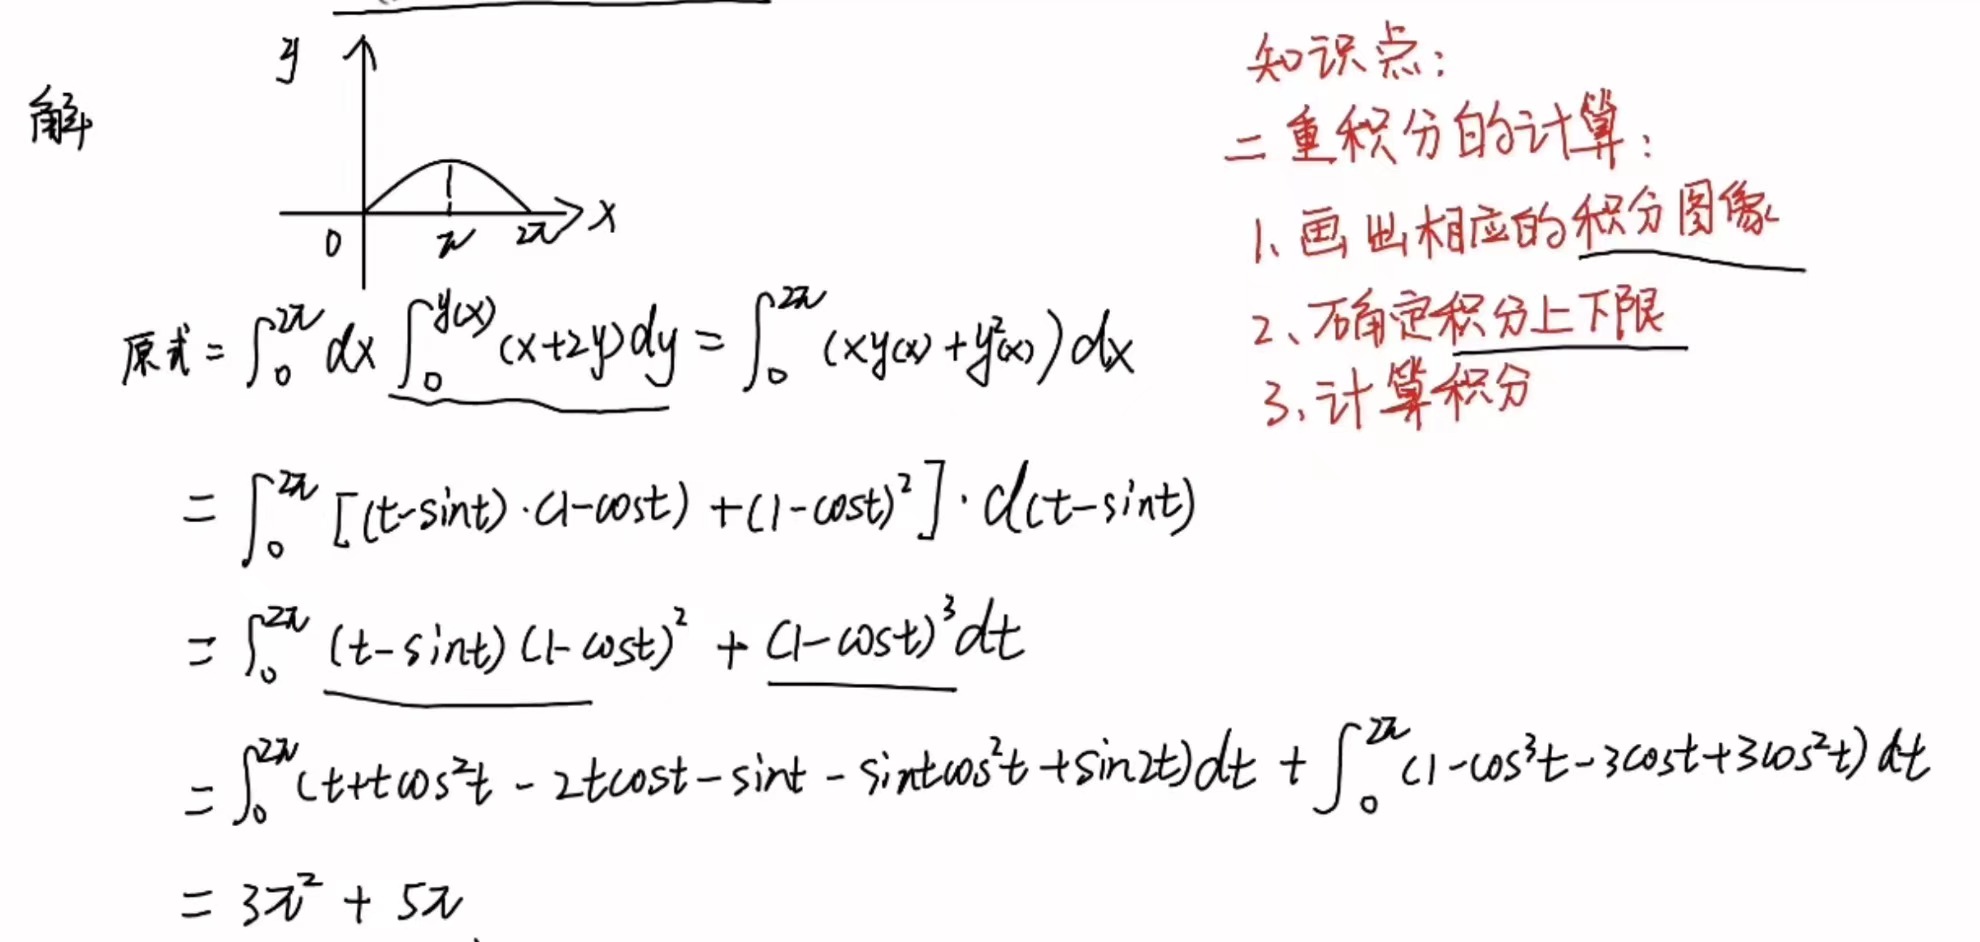 解
y
x
0 π 2π
知识点:
二重积分的计算:
1、画出相应的积分图像
2、确定积分上下限
3、计算积分
原式 = ∫₀^{2π} dx ∫₀^{y(x)} (x+2y)dy = ∫₀^{2π} (xy(x) + y²(x)) dx
= ∫₀^{2π} [(t-sint)·(1-cost) + (1-cost)²]·d(t-sint)
= ∫₀^{2π} (t-sint)(1-cost)² + (1-cost)³dt
= ∫₀^{2π} (t+tcos²t - 2tcost - sint - sintcos²t + sin2t)dt + ∫₀^{2π} (1-cos³t-3cost+3cos²t)dt
= 3π² + 5π